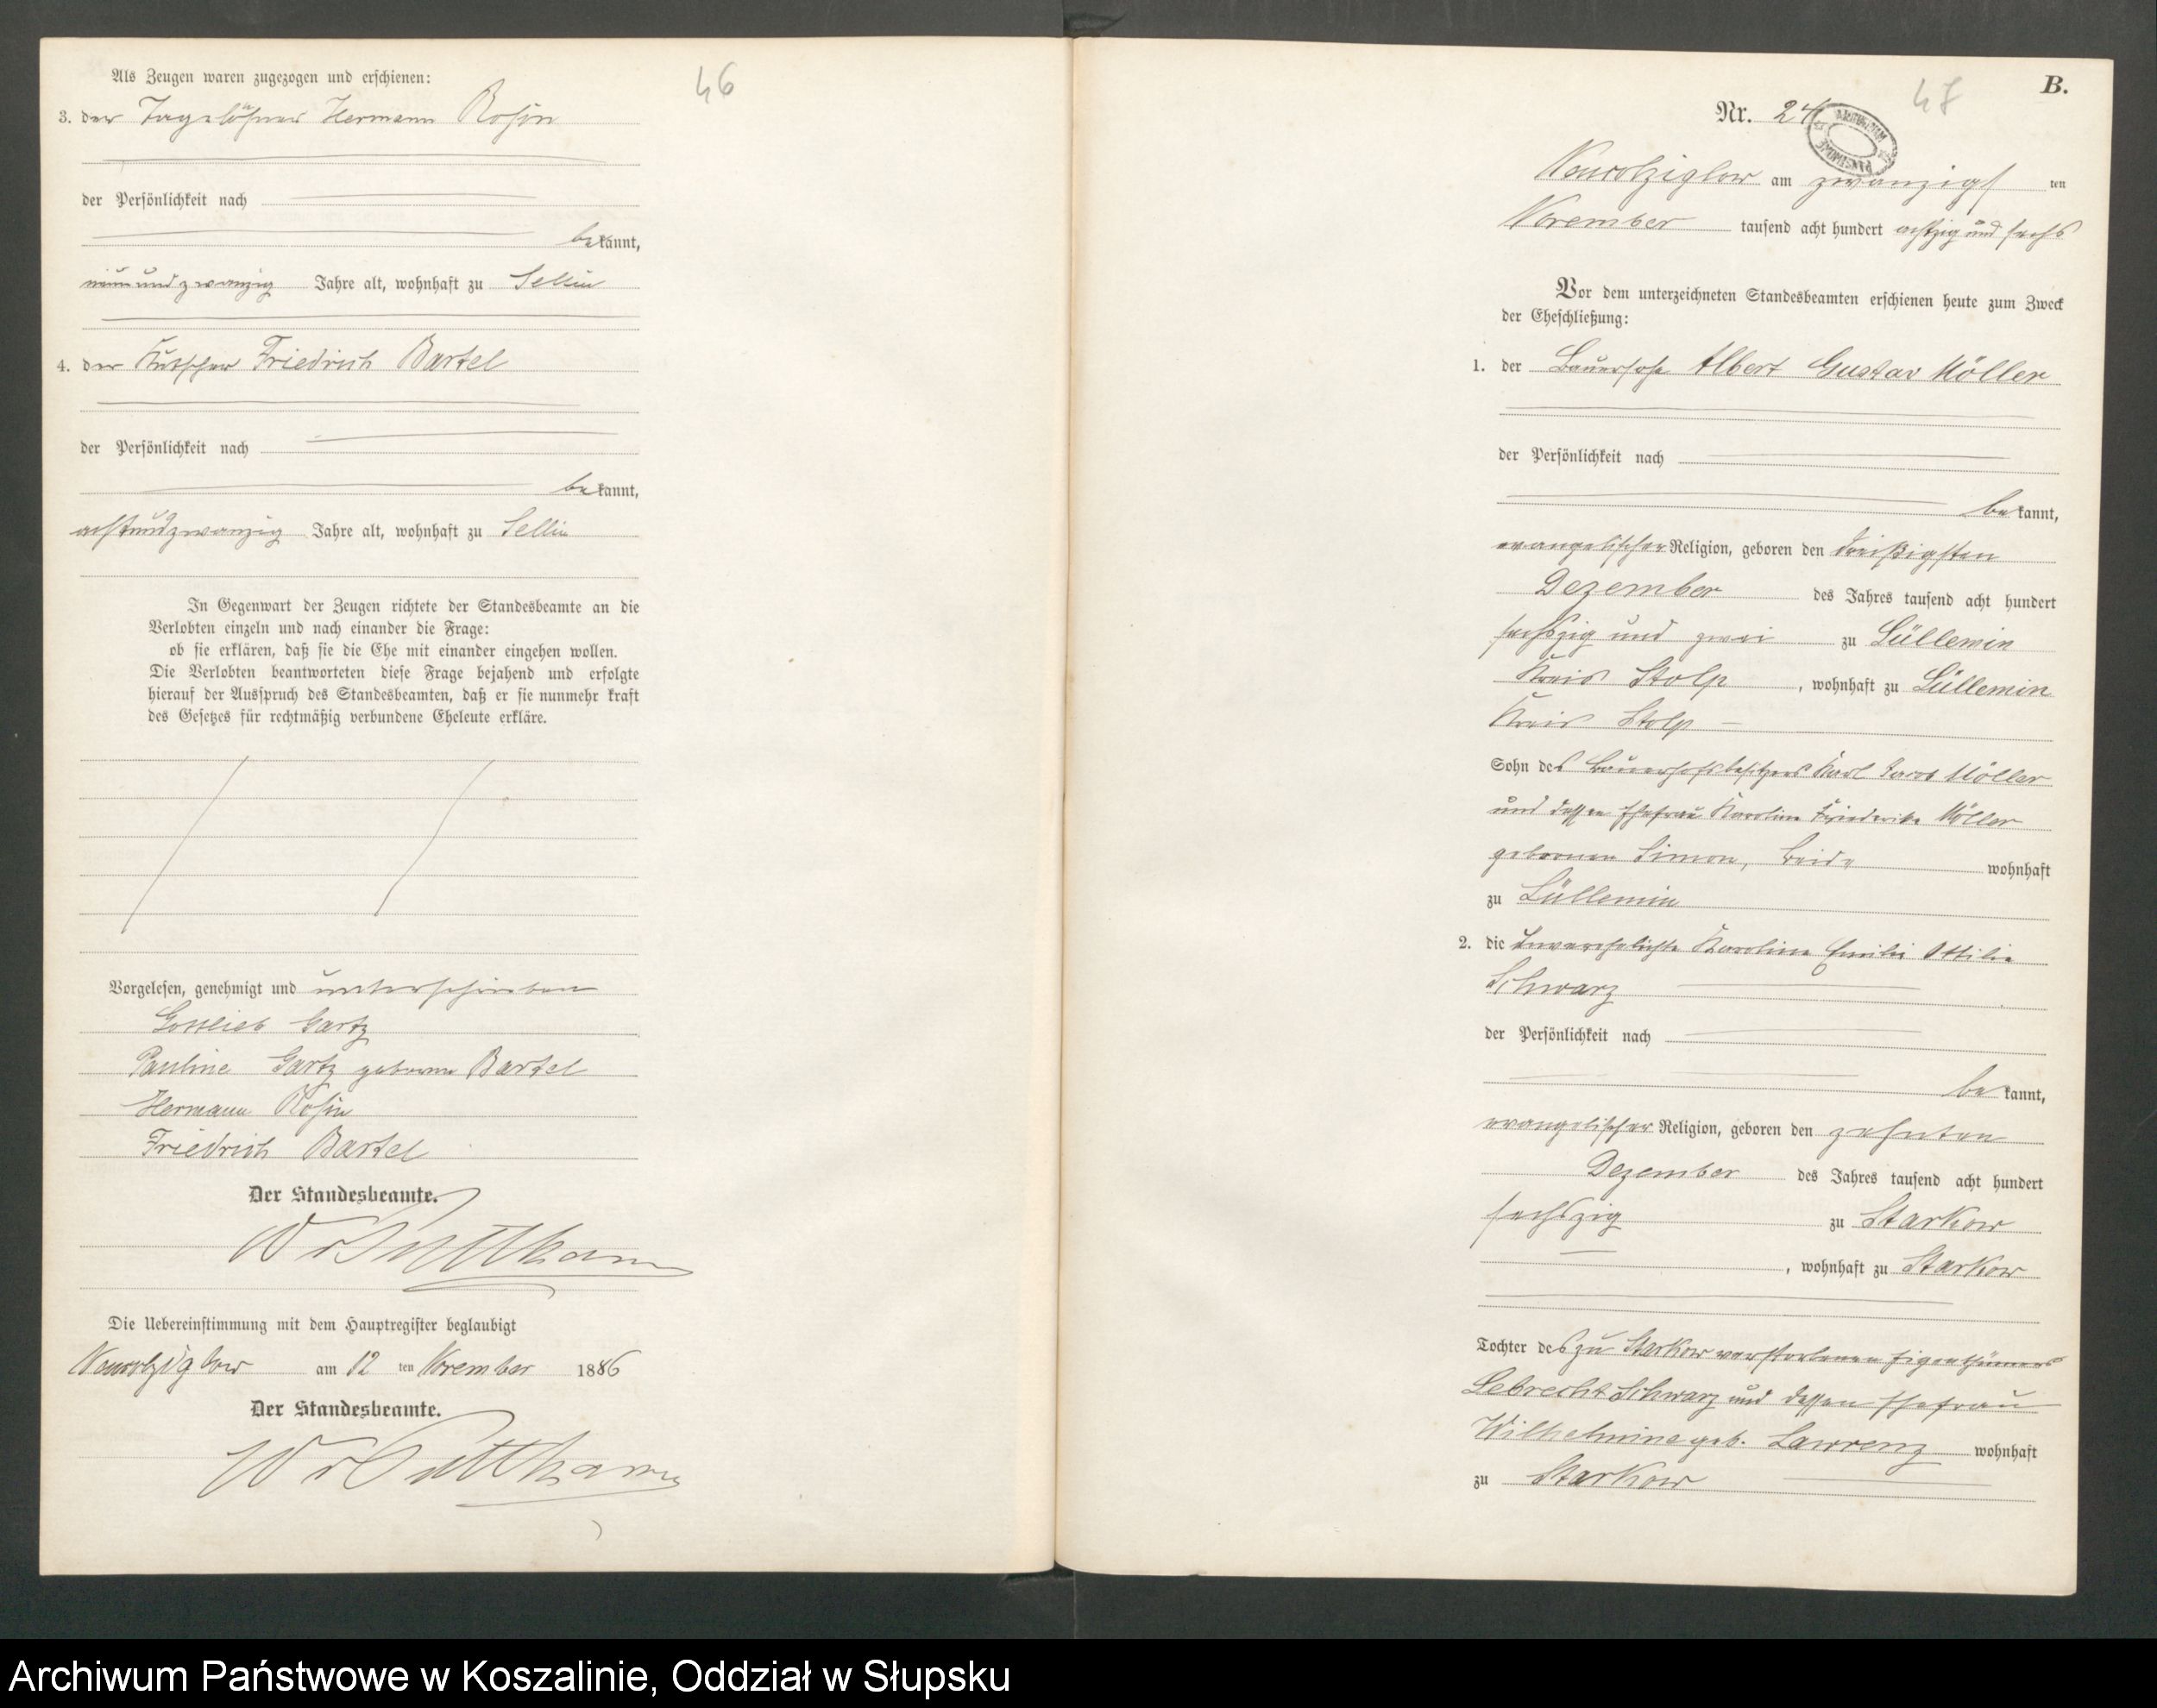 Als Zeugen waren zugezogen und erschienen:
46
3. der Tagelöhner Hermann Rosin
der Persönlichkeit nach
bekannt,
neunundzwanzig Jahre alt, wohnhaft zu Sellin
4. der Kutscher Friedrich Bartel
der Persönlichkeit nach
bekannt,
achtundzwanzig Jahre alt, wohnhaft zu Sellin
In Gegenwart der Zeugen richtete der Standesbeamte an die
Verlobten einzeln und nach einander die Frage:
ob sie erklären, daß sie die Ehe mit einander eingehen wollen.
Die Verlobten beantworteten diese Frage bejahend und erfolgte
hierauf der Ausspruch des Standesbeamten, daß er sie nunmehr kraft
des Gesetzes für rechtmäßig verbundene Eheleute erkläre.
Vorgelesen, genehmigt und unterschrieben
Gottlieb Gartz
Pauline Gartz geborne Bartel
Hermann Rosin
Friedrich Bartel
Der Standesbeamte.
W v Puttkamer
Die Uebereinstimmung mit dem Hauptregister beglaubigt
am 12 ten November 1886
Der Standesbeamte.
W v Puttkamer
47
B.
Nr. 24
am zwanzigsten
November tausend acht hundert achtzig und sechs
Vor dem unterzeichneten Standesbeamten erschienen heute zum Zweck
der Eheschließung:
1. der Albert Gustav Möller
der Persönlichkeit nach
bekannt,
evangelischer Religion, geboren den dreißigsten
Dezember des Jahres tausend acht hundert
sechszig und zwei zu Lüllemin
Kreis Stolp, wohnhaft zu Lüllemin
Kreis Stolp
Sohn des Bauerhofsbesitzers Karl Jacob Möller
und dessen Ehefrau Karoline Friederike Möller
gebornen Simon, beide wohnhaft
zu Lüllemin
2. die unverehelichte Karoline Emilie Ottilie
Schwarz
der Persönlichkeit nach
bekannt,
evangelischer Religion, geboren den zehnten
Dezember des Jahres tausend acht hundert
sechszig zu Starkow
, wohnhaft zu Starkow
Tochter des zu Starkow verstorbenen Eigenthümers
Lebrecht Schwarz und dessen Ehefrau
Wilhelmine geb. Lawrenz wohnhaft
zu Starkow
Archiwum Państwowe w Koszalinie, Oddział w Słupsku